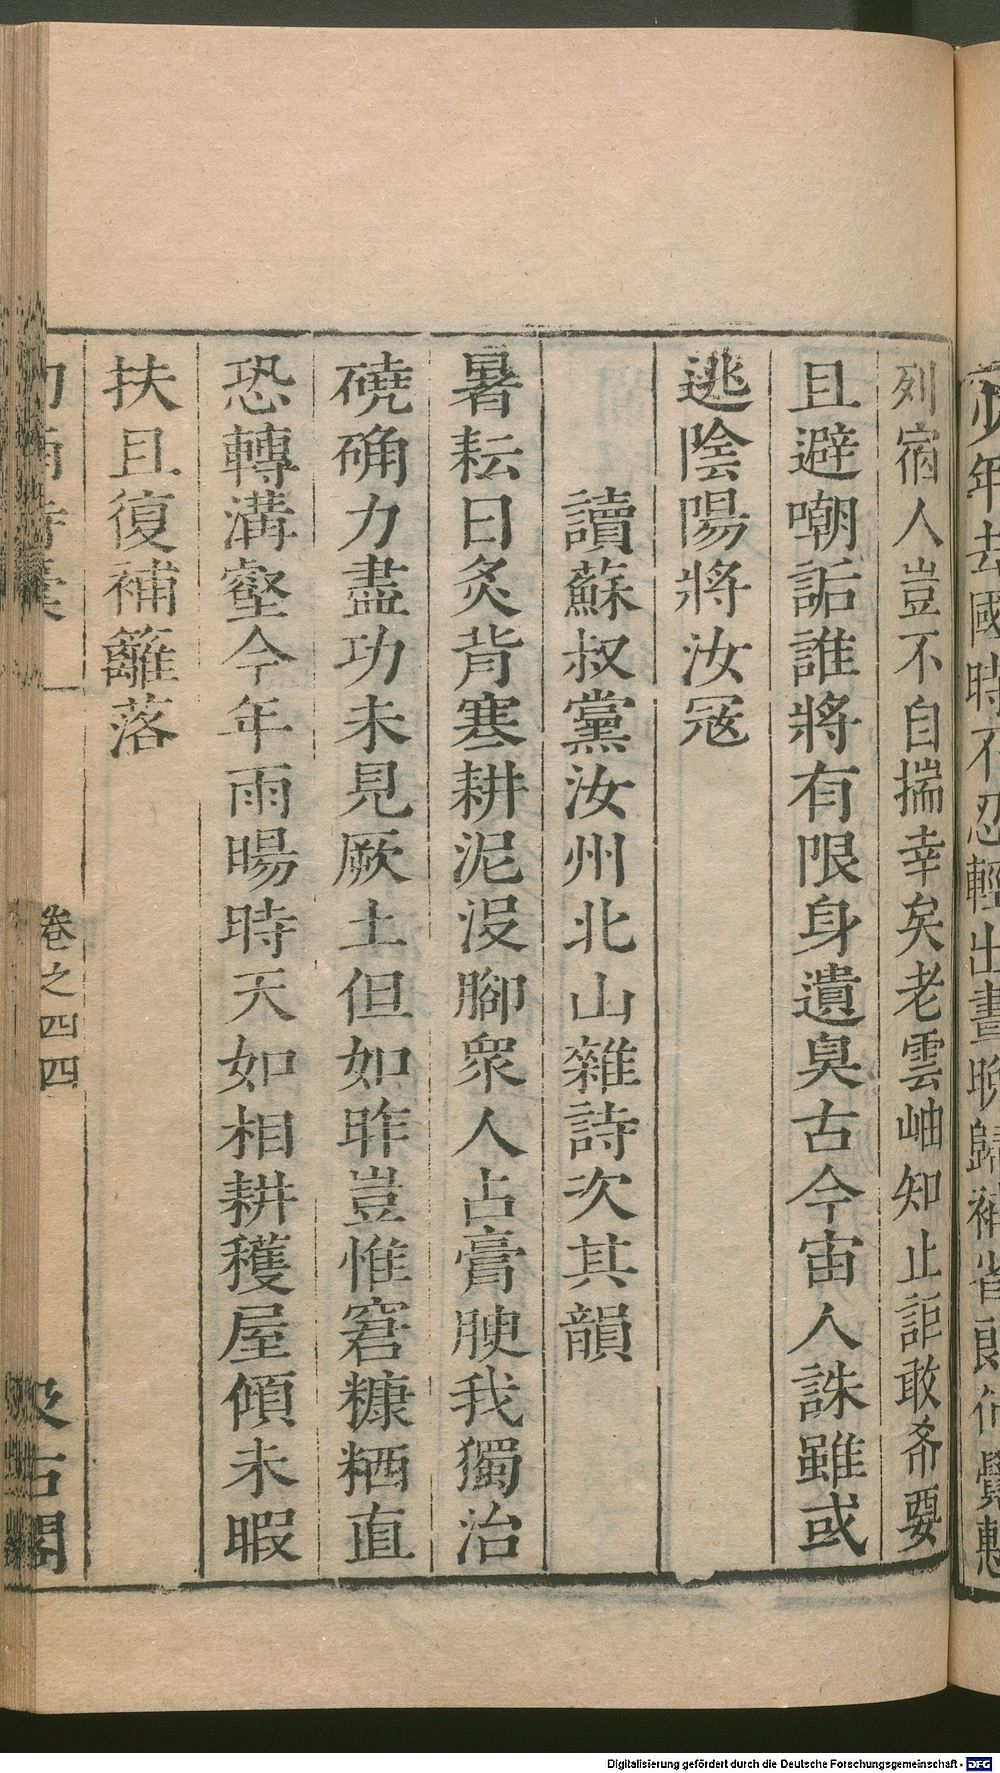 年去國時不忍輕出晝晚歸補省郎
列宿人豈不自揣幸矣老雲岫知止詎敢希要
且避嘲詬誰將有限身遺臭古今宙人誅雖或
逃陰陽將汝冦
讀蘇叔黨汝州北山雜詩次其韻
暑耘日炙背寒耕泥沒腳衆人占膏腴我獨治
磽确力盡功未見厥土但如昨豈惟窘糠粞直
恐轉溝壑今年雨暘時天如相耕穫屋傾未暇
扶且復補籬落
卷之四 四
汲古閣
Digitalisierung gefördert durch die Deutsche Forschungsgemeinschaft - DFG